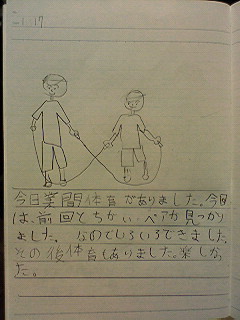 1:17
今日業間体育がありました。今回
は、前回とちがい、ペアが見つかり
ました。なのでいろいろできました。
その後体育もありました。楽しなっ
た。